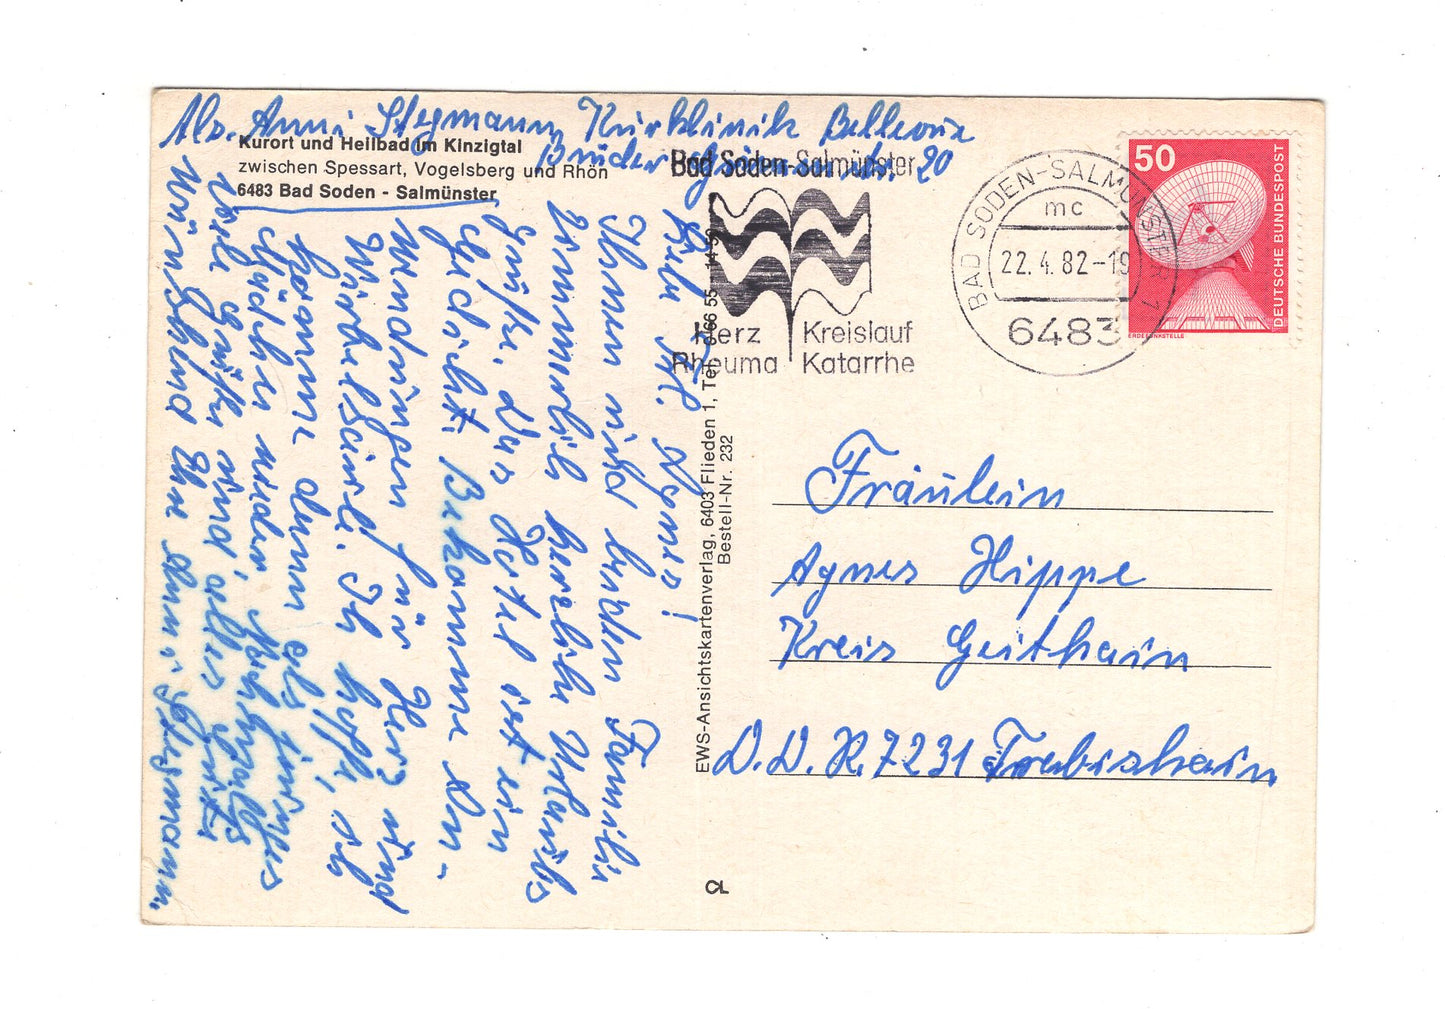 Abs. Anni Stegmann, Kurklinik Bellevue
Brüder-Grimm-Str. 20
Kurort und Heilbad im Kinzigtal
zwischen Spessart, Vogelsberg und Rhön
6483 Bad Soden - Salmünster
Bad Soden-Salmünster
Herz Kreislauf
Rheuma Katarrhe
BAD SODEN-SALMÜNSTER 1
mc
22.4.82-19
6483
50
DEUTSCHE BUNDESPOST
ERDEFUNKSTELLE
Frl. Agnes!
Ihnen und Familie
herzliche
Grüße. Das ist ein
Gedicht. Bekomme An-
wendungen für Herz und
Wirbelsäule. Ich hoffe, ich
komme dann als junges
Mädchen wieder. Nochmals
viele Grüße und alles Gute
wünschend Ihre Anni Stegmann.
EWS-Ansichtskartenverlag, 6403 Flieden 1, Tel. 0 66 55 - 14 50
Bestell-Nr. 232
Fräulein
Agnes Hippe
Kreis Geithain
D.D.R. 7231 Trebishain